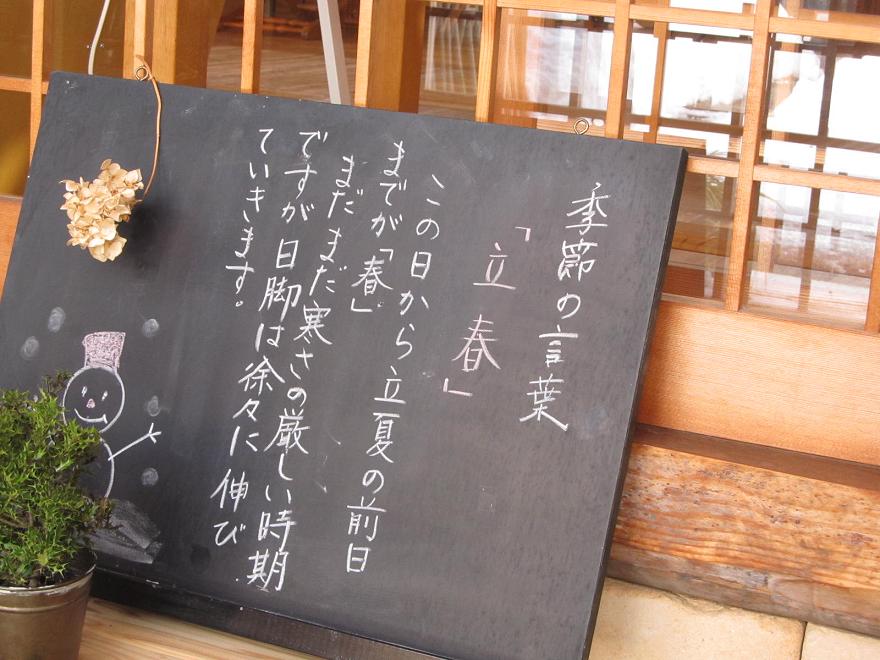 季節の言葉
「立春」
この日から立夏の前日
までが「春」
まだまだ寒さの厳しい時期
ですが日脚は徐々に伸び
ていきます。